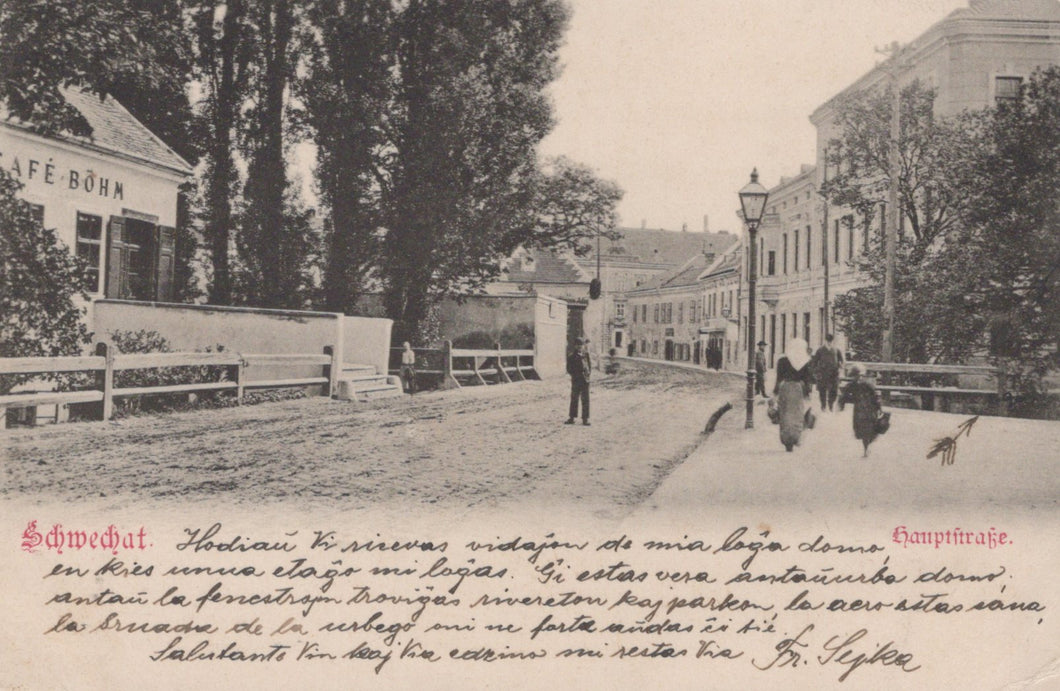 CAFÉ BÖHM
Schwechat.
Hauptstraße.
Hodiaŭ Vi ricevas vidaĵon de mia loĝa domo
en kies unua etaĝo mi loĝas. Ĝi estas vera antaŭurba domo.
antaŭ la fenestroj troviĝas rivereton kaj parkon, la aero estas sána,
la bruado de la urbego oni ne forte aŭdas ĉi tié.
Salutante Vin kaj Via edzino mi restas Via Fr. Sejka